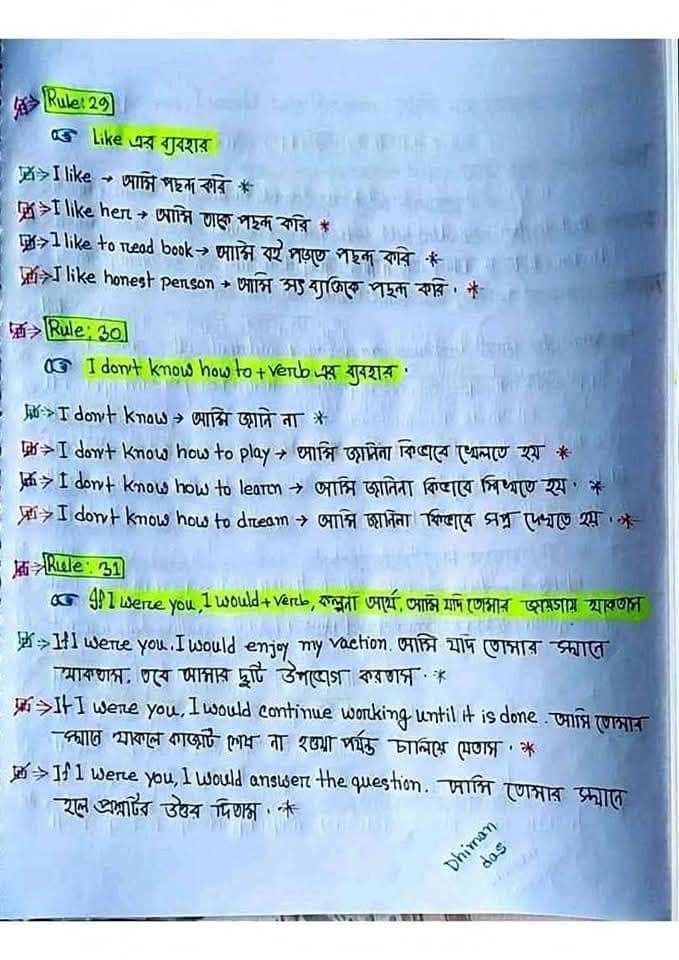 Rule: 29
Like এর ব্যবহার
I like → আমি পছন্দ করি *
I like her → আমি তাকে পছন্দ করি *
I like to read book → আমি বই পড়তে পছন্দ করি *
I like honest person → আমি সৎ ব্যক্তিকে পছন্দ করি . *
Rule: 30
I don't know how to + verb এর ব্যবহার .
I don't know → আমি জানি না *
I don't know how to play → আমি জানিনা কিভাবে খেলতে হয় *
I don't know how to learn → আমি জানিনা কিভাবে শিখতে হয় . *
I don't know how to dream → আমি জানিনা কিভাবে সপ্ন দেখতে হয় . *
Rule: 31
If I were you, I would + verb, কল্পনা অর্থে, আমি যদি তোমার জায়গায় থাকতাম
If I were you, I would enjoy my vaction. আমি যদি তোমার স্থানে
থাকতাম, তবে আমার ছুটি উপভোগ করতাম . *
If I were you, I would continue working until it is done. আমি তোমার
স্থানে থাকলে কাজটি শেষ না হওয়া পর্যন্ত চালিয়ে যেতাম . *
If I were you, I would answer the question. আমি তোমার স্থানে
হলে প্রশ্নটির উত্তর দিতাম . *
Dhiman
das